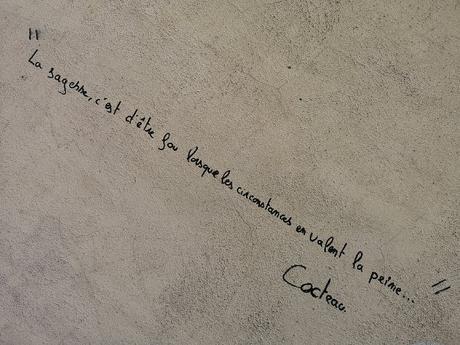 " La sagesse, c'est d'être fou lorsque les circonstances en valent la peine... "
Cocteau.